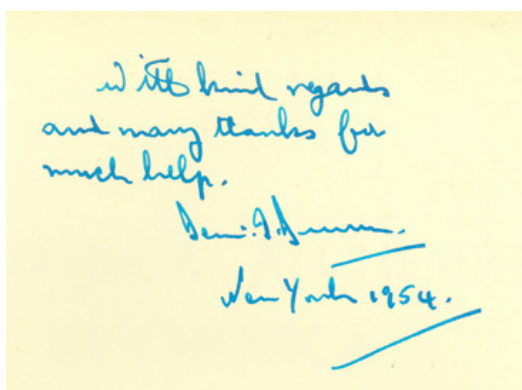 With kind regards
and many thanks for
much help.
New York 1954.